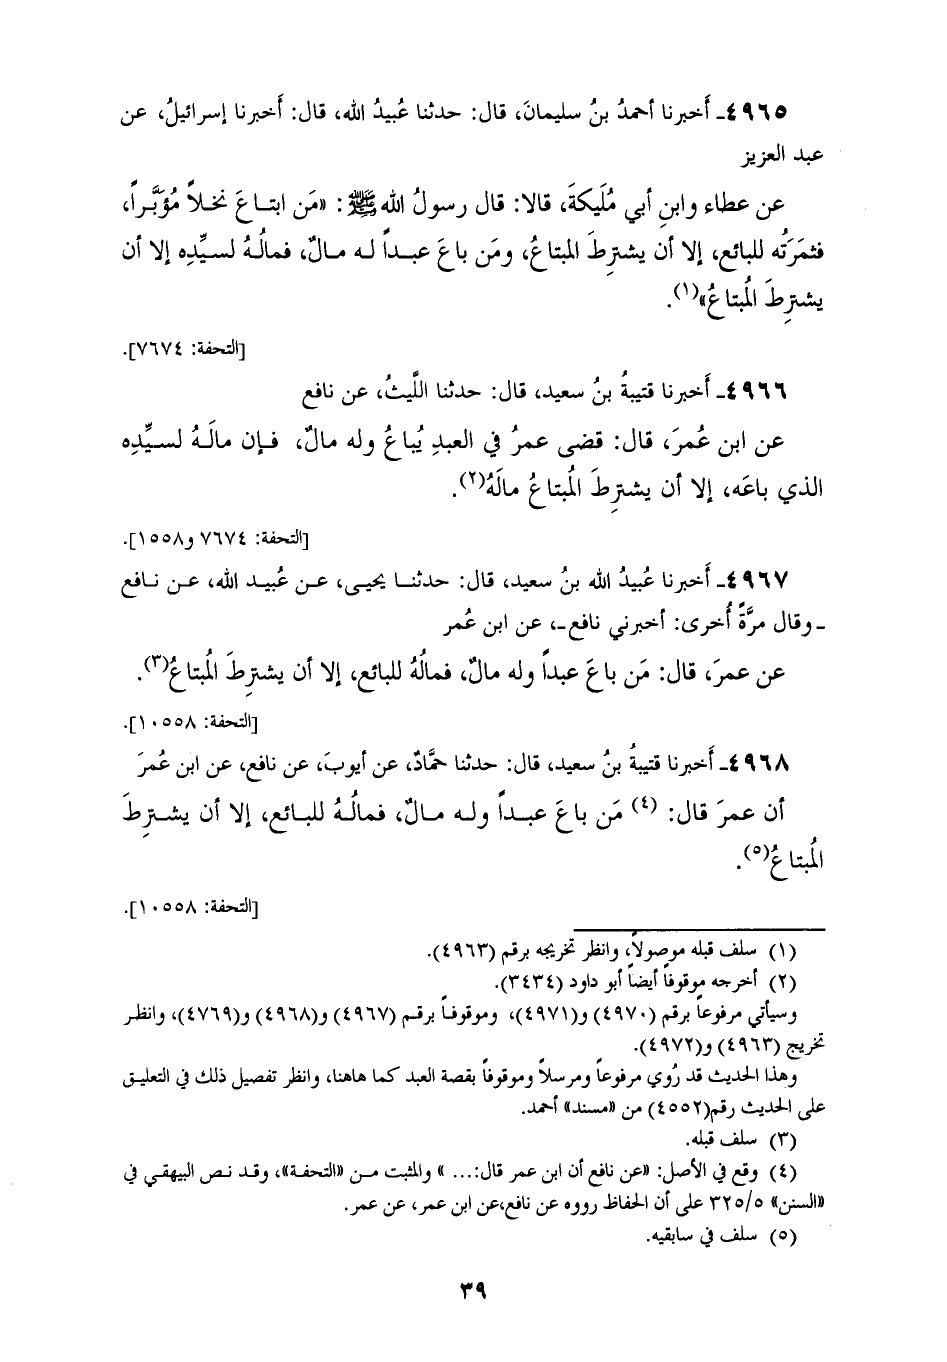 ٤٩٦٥ـ أَخبرنا أحمدُ بنُ سليمانَ، قال: حدثنا عُبيدُ الله، قال: أَخبرنا إسرائيلُ، عن
عبد العزيز
عن عطاء وابنِ أبي مُلَيكةَ، قالا: قال رسولُ الله ﷺ: «مَن ابتـاعَ نخلاً مُؤَبَّراً،
فثمرَتُه للبائع، إلا أن يشترِطَ المبتاعُ، ومَن باعَ عبـداً لـه مـالٌ، فمالُـهُ لسيِّدِه إلا أن
يشترِطَ المُبتاعُ»(١).
[التحفة: ٧٦٧٤].
٤٩٦٦ـ أَخبرنا قتيبةُ بنُ سعيد، قال: حدثنا اللَّيثُ، عن نافع
عن ابن عُمرَ، قال: قضى عمرُ في العبدِ يُباعُ وله مالٌ، فـإن مالَـهُ لسيِّدِه
الذي باعَه، إلا أن يشترِطَ المُبتاعُ مالَهُ(٢).
[التحفة: ٧٦٧٤ و١٥٥٨].
٤٩٦٧ـ أَخبرنا عُبيدُ الله بنُ سعيد، قال: حدثنـا يحيـى، عـن عُبيـد الله، عـن نـافع
ـ وقال مرَّةً أُخرى: أخبرني نافع ـ، عن ابن عُمر
عن عمرَ، قال: مَن باعَ عبداً وله مالٌ، فمالُهُ للبائع، إلا أن يشترِطَ المُبتاعُ(٣).
[التحفة: ١٠٥٥٨].
٤٩٦٨ـ أَخبرنا قتيبةُ بنُ سعيد، قال: حدثنا حمَّادٌ، عن أيوبَ، عن نافع، عن ابن عُمرَ
أن عمرَ قال: (٤) مَن باعَ عبـداً ولـه مـالٌ، فمالُـهُ للبـائع، إلا أن يشـترِطَ
المُبتاعُ(٥).
[التحفة: ١٠٥٥٨].
(١) سلف قبله موصولاً، وانظر تخريجه برقم (٤٩٦٣).
(٢) أخرجه موقوفاً أيضاً أبو داود (٣٤٣٤).
وسيأتي مرفوعاً برقم (٤٩٧٠) و(٤٩٧١)، وموقوفـاً برقـم (٤٩٦٧) و(٤٩٦٨) و(٤٧٦٩)، وانظـر
تخريج (٤٩٦٣) و(٤٩٧٢).
وهذا الحديث قد رُوي مرفوعاً ومرسلاً وموقوفاً بقصة العبد كما هاهنا، وانظر تفصيل ذلك في التعليـق
على الحديث رقم(٤٥٥٢) من «مسند» أحمد.
(٣) سلف قبله.
(٤) وقع في الأصل: «عن نافع أن ابن عمر قال:... » والمثبت مـن «التحفـة»، وقـد نـص البيهقـي في
«السنن» ٣٢٥/٥ على أن الحفاظ رووه عن نافع،عن ابن عمر، عن عمر.
(٥) سلف في سابقيه.
٣٩